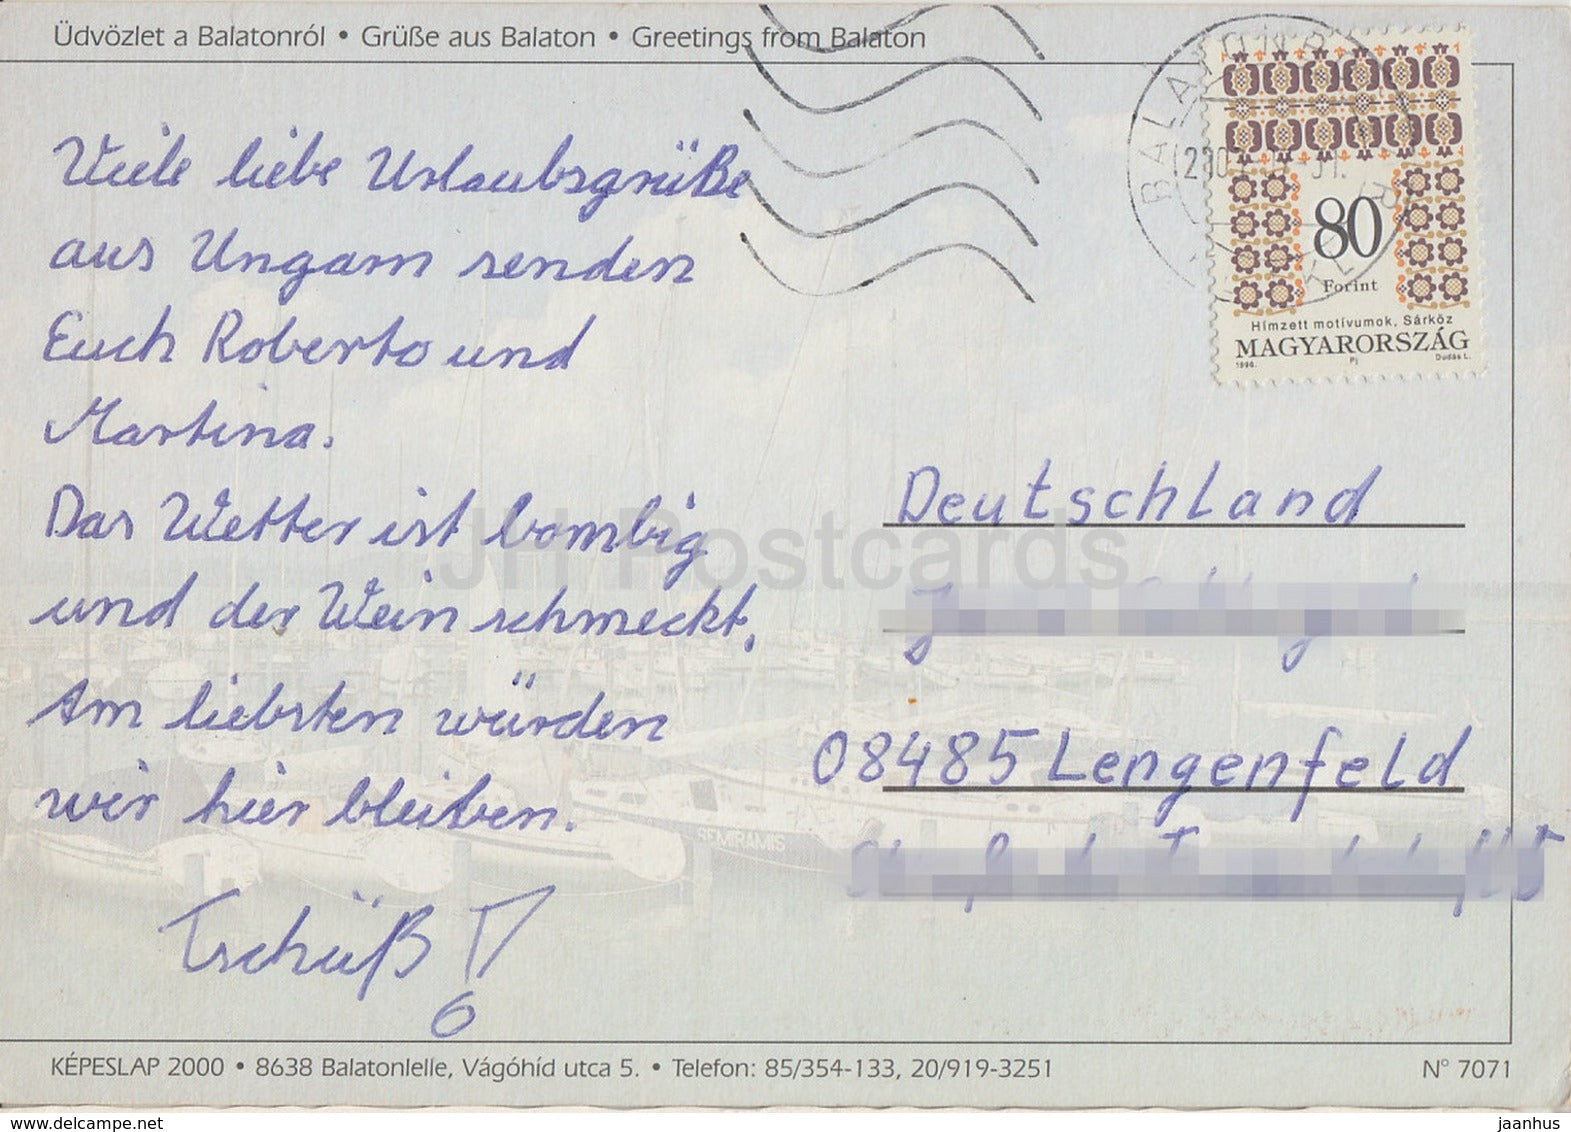 Üdvözlet a Balatonról • Grüße aus Balaton • Greetings from Balaton
Viele liebe Urlaubsgrüße
aus Ungarn senden
Euch Roberto und
Martina.
Das Wetter ist bombig
und der Wein schmeckt.
Am liebsten würden
wir hier bleiben.
Tschüß
80
Forint
Hímzett motívumok, Sárköz
MAGYARORSZÁG
1996. Pj Dudás L.
Deutschland
08485 Lengenfeld
SEMIRAMIS
JH Postcards
KÉPESLAP 2000 • 8638 Balatonlelle, Vágóhíd utca 5. • Telefon: 85/354-133, 20/919-3251
N° 7071
delcampe.net
jaanhus